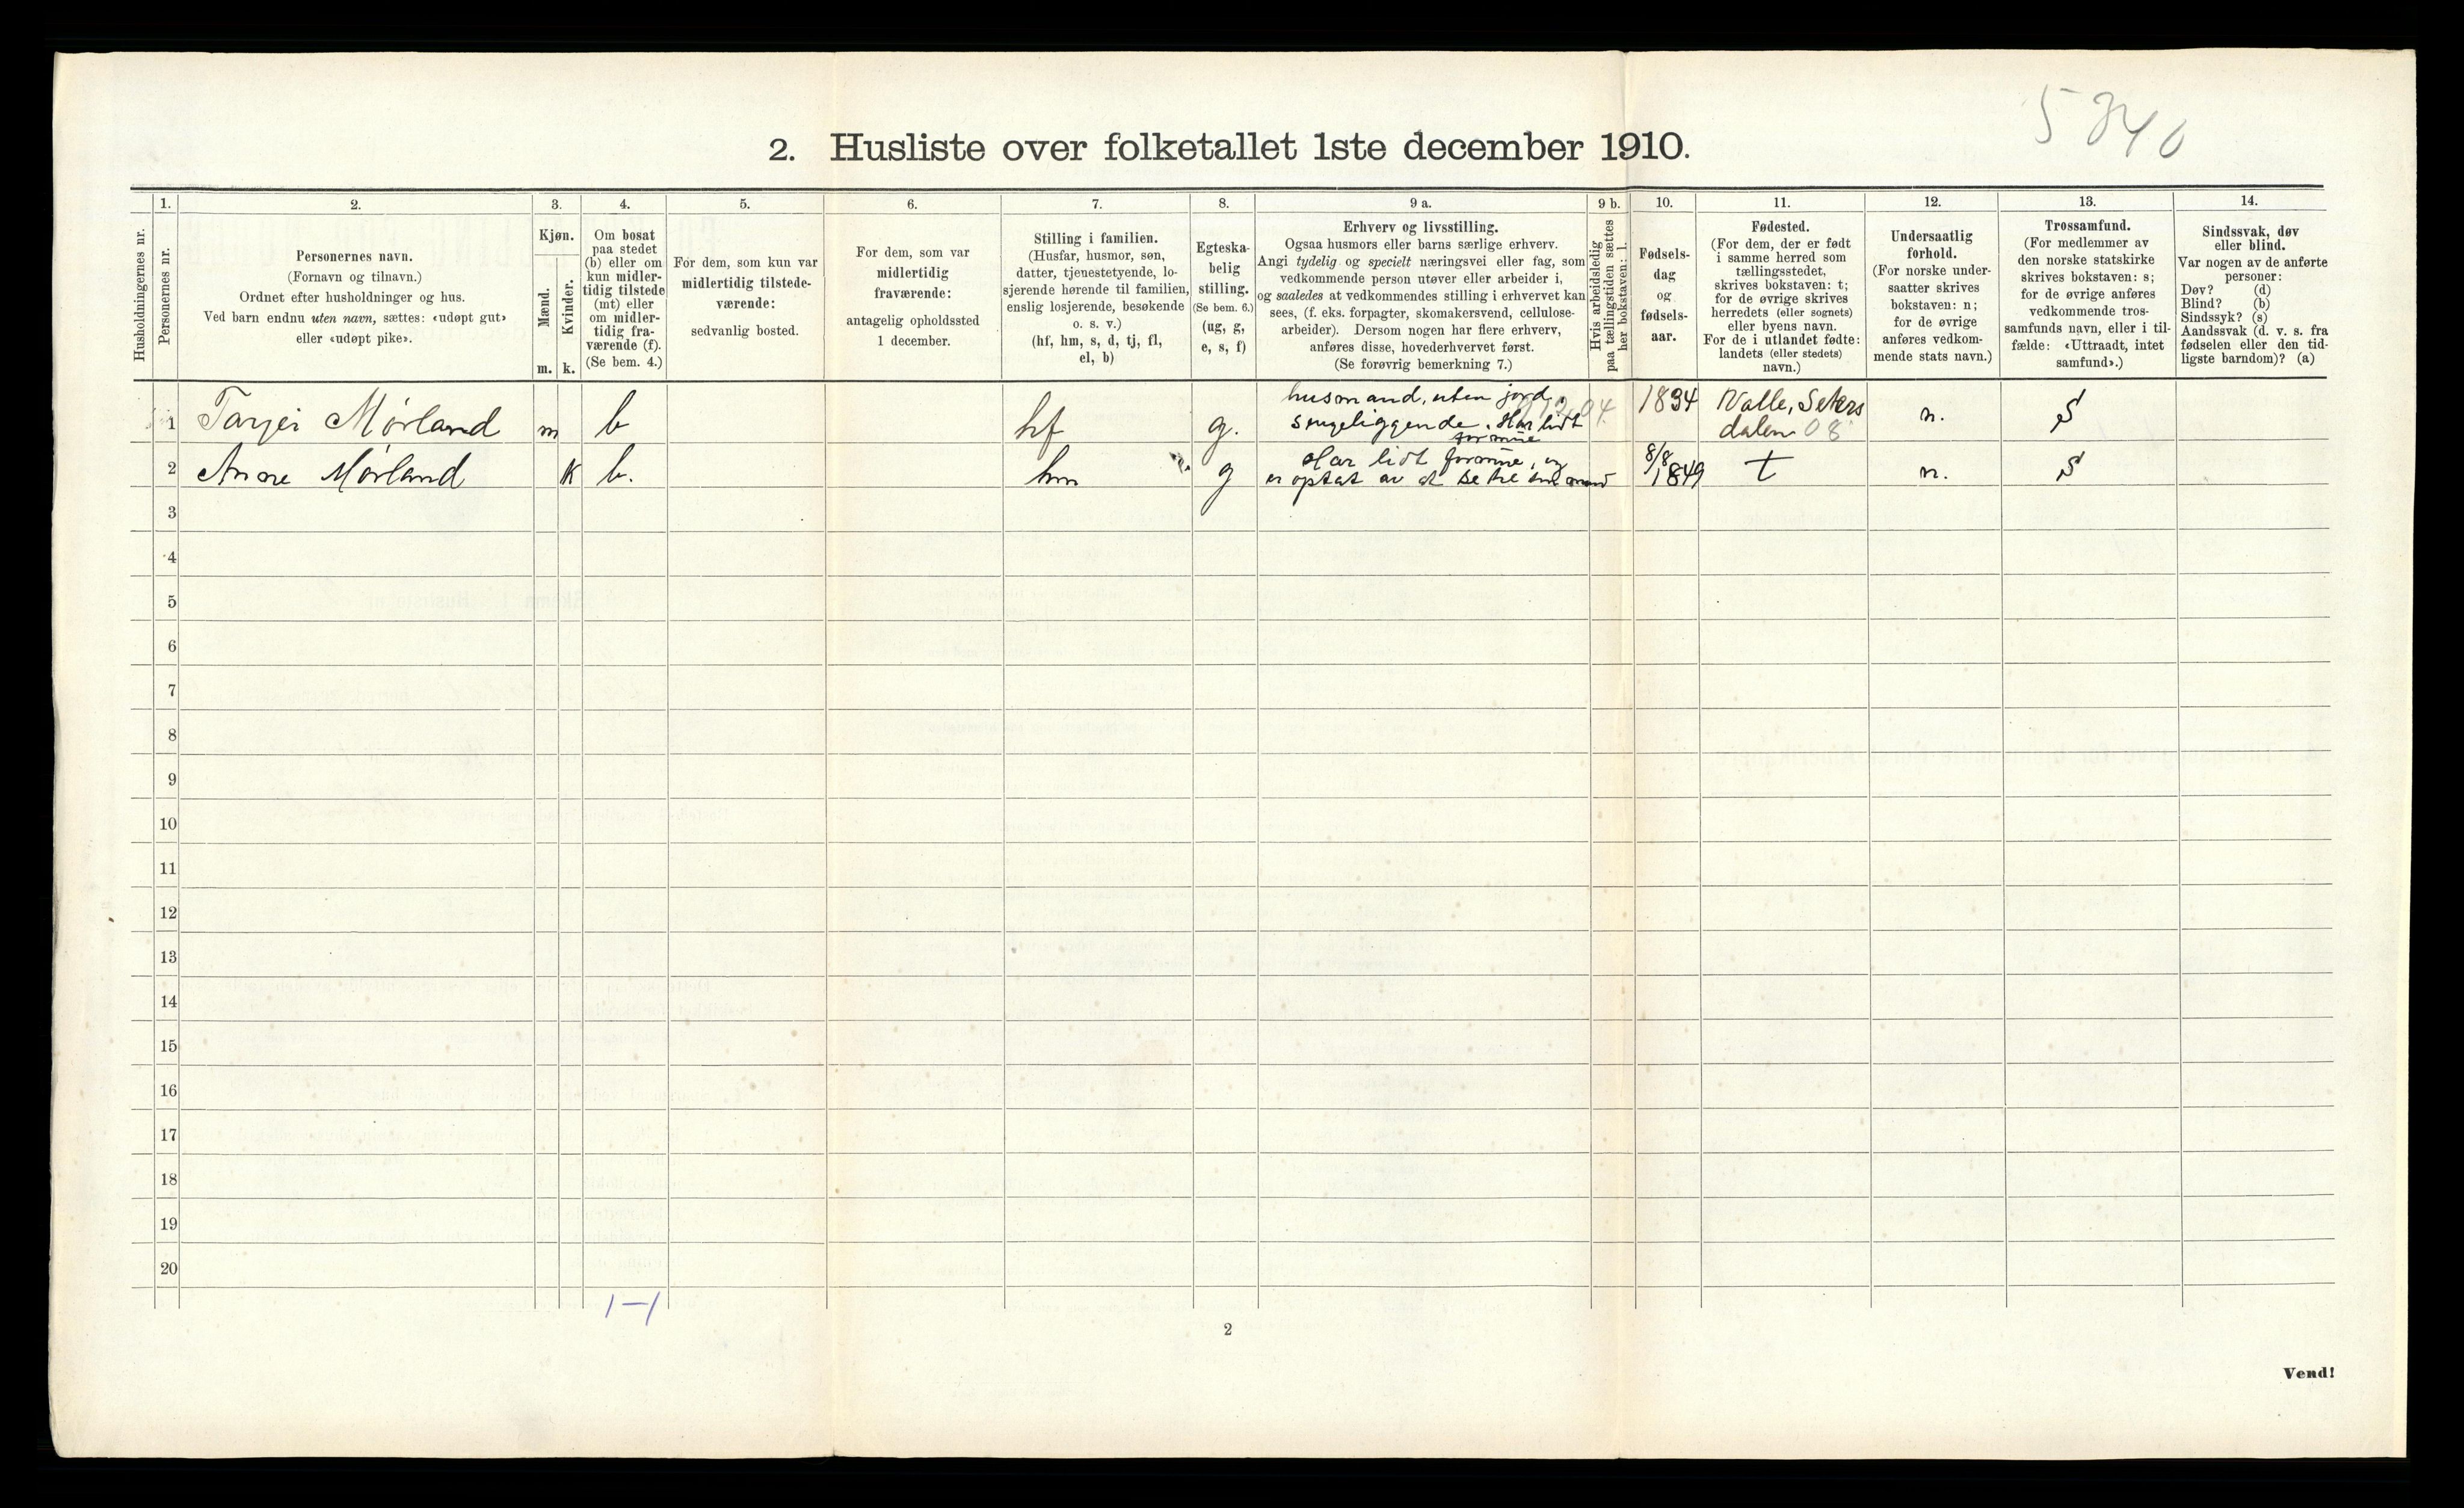 5840
2. Husliste over folketallet 1ste december 1910.
Husholdningernes nr.
1.
Personernes nr.
2.
Personernes navn.
(Fornavn og tilnavn.)
Ordnet efter husholdninger og hus.
Ved barn endnu uten navn, sættes: «udøpt gut»
eller «udøpt pike».
3.
Kjøn.
Mænd.
Kvinder.
m. k.
4.
Om bosat
paa stedet
(b) eller om
kun midler-
tidig tilstede
(mt) eller
om midler-
tidig fra-
værende (f).
(Se bem. 4.)
5.
For dem, som kun var
midlertidig tilstede-
værende:
sedvanlig bosted.
6.
For dem, som var
midlertidig
fraværende:
antagelig opholdssted
1 december.
7.
Stilling i familien.
(Husfar, husmor, søn,
datter, tjenestetyende, lo-
sjerende hørende til familien,
enslig losjerende, besøkende
o. s. v.)
(hf, hm, s, d, tj, fl,
el, b)
8.
Egteska-
belig
stilling.
(Se bem. 6.)
(ug, g,
e, s, f)
9 a.
Erhverv og livsstilling.
Ogsaa husmors eller barns særlige erhverv.
Angi tydelig og specielt næringsvei eller fag, som
vedkommende person utøver eller arbeider i,
og saaledes at vedkommendes stilling i erhvervet kan
sees, (f. eks. forpagter, skomakersvend, cellulose-
arbeider). Dersom nogen har flere erhverv,
anføres disse, hovederhvervet først.
(Se forøvrig bemerkning 7.)
9 b.
Hvis arbeidsledig
paa tællingstiden sættes
her bokstaven: l.
10.
Fødsels-
dag
og
fødsels-
aar.
11.
Fødested.
(For dem, der er født
i samme herred som
tællingsstedet,
skrives bokstaven: t;
for de øvrige skrives
herredets (eller sognets)
eller byens navn.
For de i utlandet fødte:
landets (eller stedets)
navn.)
12.
Undersaatlig
forhold.
(For norske under-
saatter skrives
bokstaven: n;
for de øvrige
anføres vedkom-
mende stats navn.)
13.
Trossamfund.
(For medlemmer av
den norske statskirke
skrives bokstaven: s;
for de øvrige anføres
vedkommende tros-
samfunds navn, eller i til-
fælde: «Uttraadt, intet
samfund».)
14.
Sindssvak, døv
eller blind.
Var nogen av de anførte
personer:
Døv? (d)
Blind? (b)
Sindssyk? (s)
Aandssvak (d. v. s. fra
fødselen eller den tid-
ligste barndom)? (a)
1 Tarjei Mørland m b hf g. husmand, uten jord,
sengeliggende. Har lidt
formue
1834 Valle, Seters
dalen 08 n. S
2 Anne Mørland k b. hm g Har lidt formue, og
er optat av at stelle sin mand
8/8 1849 t n. S
3
4
5
6
7
8
9
10
11
12
13
14
15
16
17
18
19
20
1-1
2
Vend!